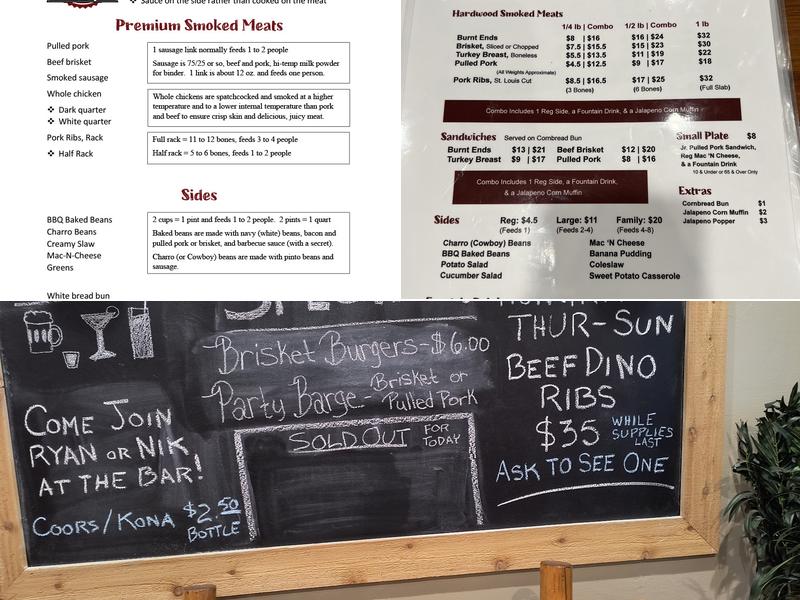 Sauce on the side rather than cooked on the meat
Premium Smoked Meats
Pulled pork
Beef brisket
Smoked sausage
Whole chicken
❖ Dark quarter
❖ White quarter
Pork Ribs, Rack
❖ Half Rack
1 sausage link normally feeds 1 to 2 people
Sausage is 75/25 or so, beef and pork, hi-temp milk powder
for binder. 1 link is about 12 oz. and feeds one person.
Whole chickens are spatchcocked and smoked at a higher
temperature and to a lower internal temperature than pork
and beef to ensure crispy skin and delicious, juicy meat.
Full rack = 11 to 12 bones, feeds 3 to 4 people
Half rack = 5 to 6 bones, feeds 1 to 2 people
Sides
BBQ Baked Beans
Charro Beans
Creamy Slaw
Mac-N-Cheese
Greens
White bread bun
2 cups = 1 pint and feeds 1 to 2 people. 2 pints = 1 quart
Baked beans are made with navy (white) beans, bacon and
pulled pork or brisket, and barbecue sauce (with a secret).
Charro (or Cowboy) beans are made with pinto beans and
sausage.
Hardwood Smoked Meats
1/4 lb | Combo 1/2 lb | Combo 1 lb
Burnt Ends $8 | $16 $16 | $24 $32
Brisket, Sliced or Chopped $7.5 | $15.5 $15 | $23 $30
Turkey Breast, Boneless $5.5 | $13.5 $11 | $19 $22
Pulled Pork $4.5 | $12.5 $9 | $17 $18
(All Weights Approximate)
Pork Ribs, St. Louis Cut $8.5 | $16.5 $17 | $25 $32
(3 Bones) (6 Bones) (Full Slab)
Combo Includes 1 Reg Side, a Fountain Drink, & a Jalapeno Corn Muffin
Sandwiches Served on Cornbread Bun
Burnt Ends $13 | $21 Beef Brisket $12 | $20
Turkey Breast $9 | $17 Pulled Pork $8 | $16
Combo Includes 1 Reg Side, a Fountain Drink,
& a Jalapeno Corn Muffin
Small Plate $8
Jr. Pulled Pork Sandwich,
Reg Mac 'N Cheese,
& a Fountain Drink
10 & Under or 65 & Over Only
Extras
Cornbread Bun $1
Jalapeno Corn Muffin $2
Jalapeno Popper $3
Sides Reg: $4.5 Large: $11 Family: $20
(Feeds 1) (Feeds 2-4) (Feeds 4-8)
Charro (Cowboy) Beans Mac 'N Cheese
BBQ Baked Beans Banana Pudding
Potato Salad Coleslaw
Cucumber Salad Sweet Potato Casserole
Brisket Burgers-$6.00
Party Barge- Brisket or
Pulled Pork
SOLD OUT FOR
TODAY
COME JOIN
RYAN OR NIK
AT THE BAR!
COORS/KONA $2.50
BOTTLE
THUR-SUN
BEEF DINO
RIBS
$35 WHILE
SUPPLIES
LAST
ASK TO SEE ONE